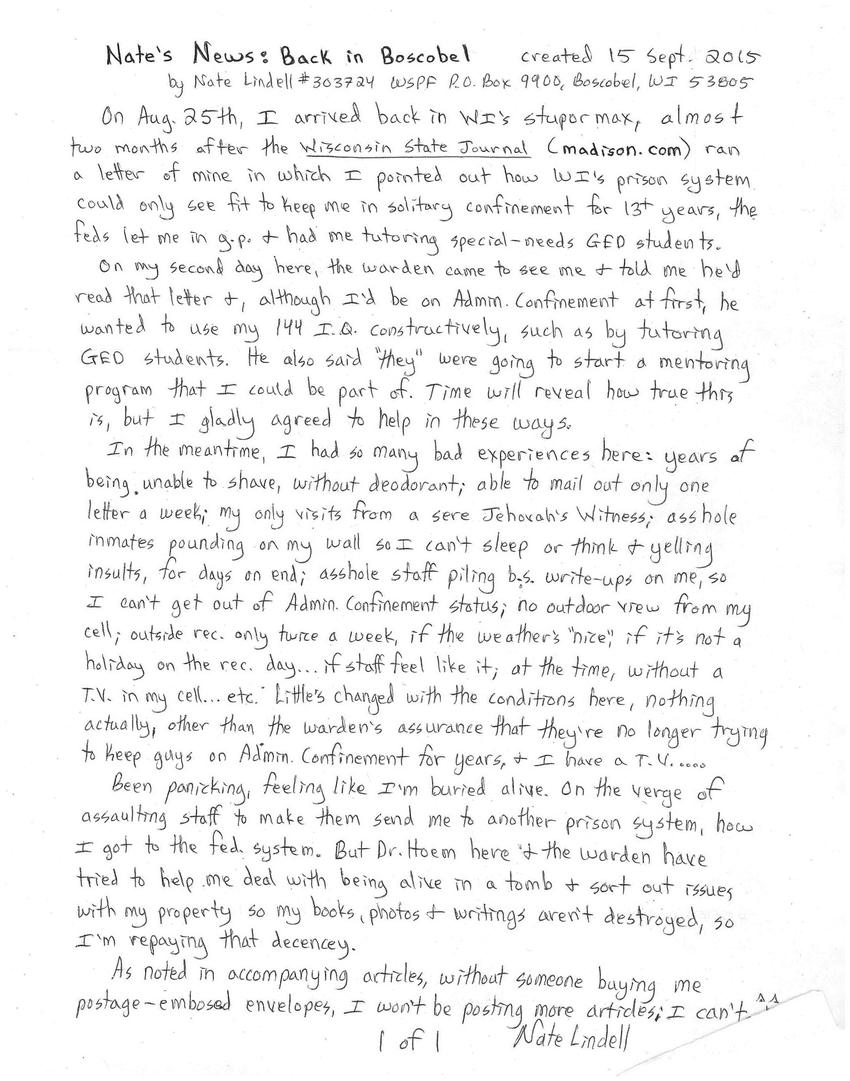 Nate's News: Back in Boscobel created 15 Sept. 2015
by Nate Lindell #303724 WSPF P.O. Box 9900, Boscobel, WI 53805
On Aug. 25th, I arrived back in WI's stupormax, almost
two months after the Wisconsin State Journal (madison.com) ran
a letter of mine in which I pointed out how WI's prison system
could only see fit to keep me in solitary confinement for 13+ years, the
feds let me in g.p. & had me tutoring special-needs GED students.
On my second day here, the warden came to see me & told me he'd
read that letter &, although I'd be on Admin. Confinement at first, he
wanted to use my 144 I.Q. constructively, such as by tutoring
GED students. He also said "they" were going to start a mentoring
program that I could be part of. Time will reveal how true this
is, but I gladly agreed to help in these ways.
In the meantime, I had so many bad experiences here: years of
being unable to shave, without deodorant; able to mail out only one
letter a week; my only visits from a sere Jehovah's Witness; asshole
inmates pounding on my wall so I can't sleep or think & yelling
insults, for days on end; asshole staff piling b.s. write-ups on me, so
I can't get out of Admin. Confinement status; no outdoor view from my
cell; outside rec. only twice a week, if the weather's "nice", if it's not a
holiday on the rec. day... if staff feel like it; at the time, without a
T.V. in my cell... etc. Little's changed with the conditions here, nothing
actually, other than the warden's assurance that they're no longer trying
to keep guys on Admin. Confinement for years, & I have a T.V.....
Been panicking, feeling like I'm buried alive. On the verge of
assaulting staff to make them send me to another prison system, how
I got to the fed. system. But Dr. Hoem here & the warden have
tried to help me deal with being alive in a tomb & sort out issues
with my property so my books, photos & writings aren't destroyed, so
I'm repaying that decencey.
As noted in accompanying articles, without someone buying me
postage-embosed envelopes, I won't be posting more articles; I can't ^^
1 of 1 Nate Lindell